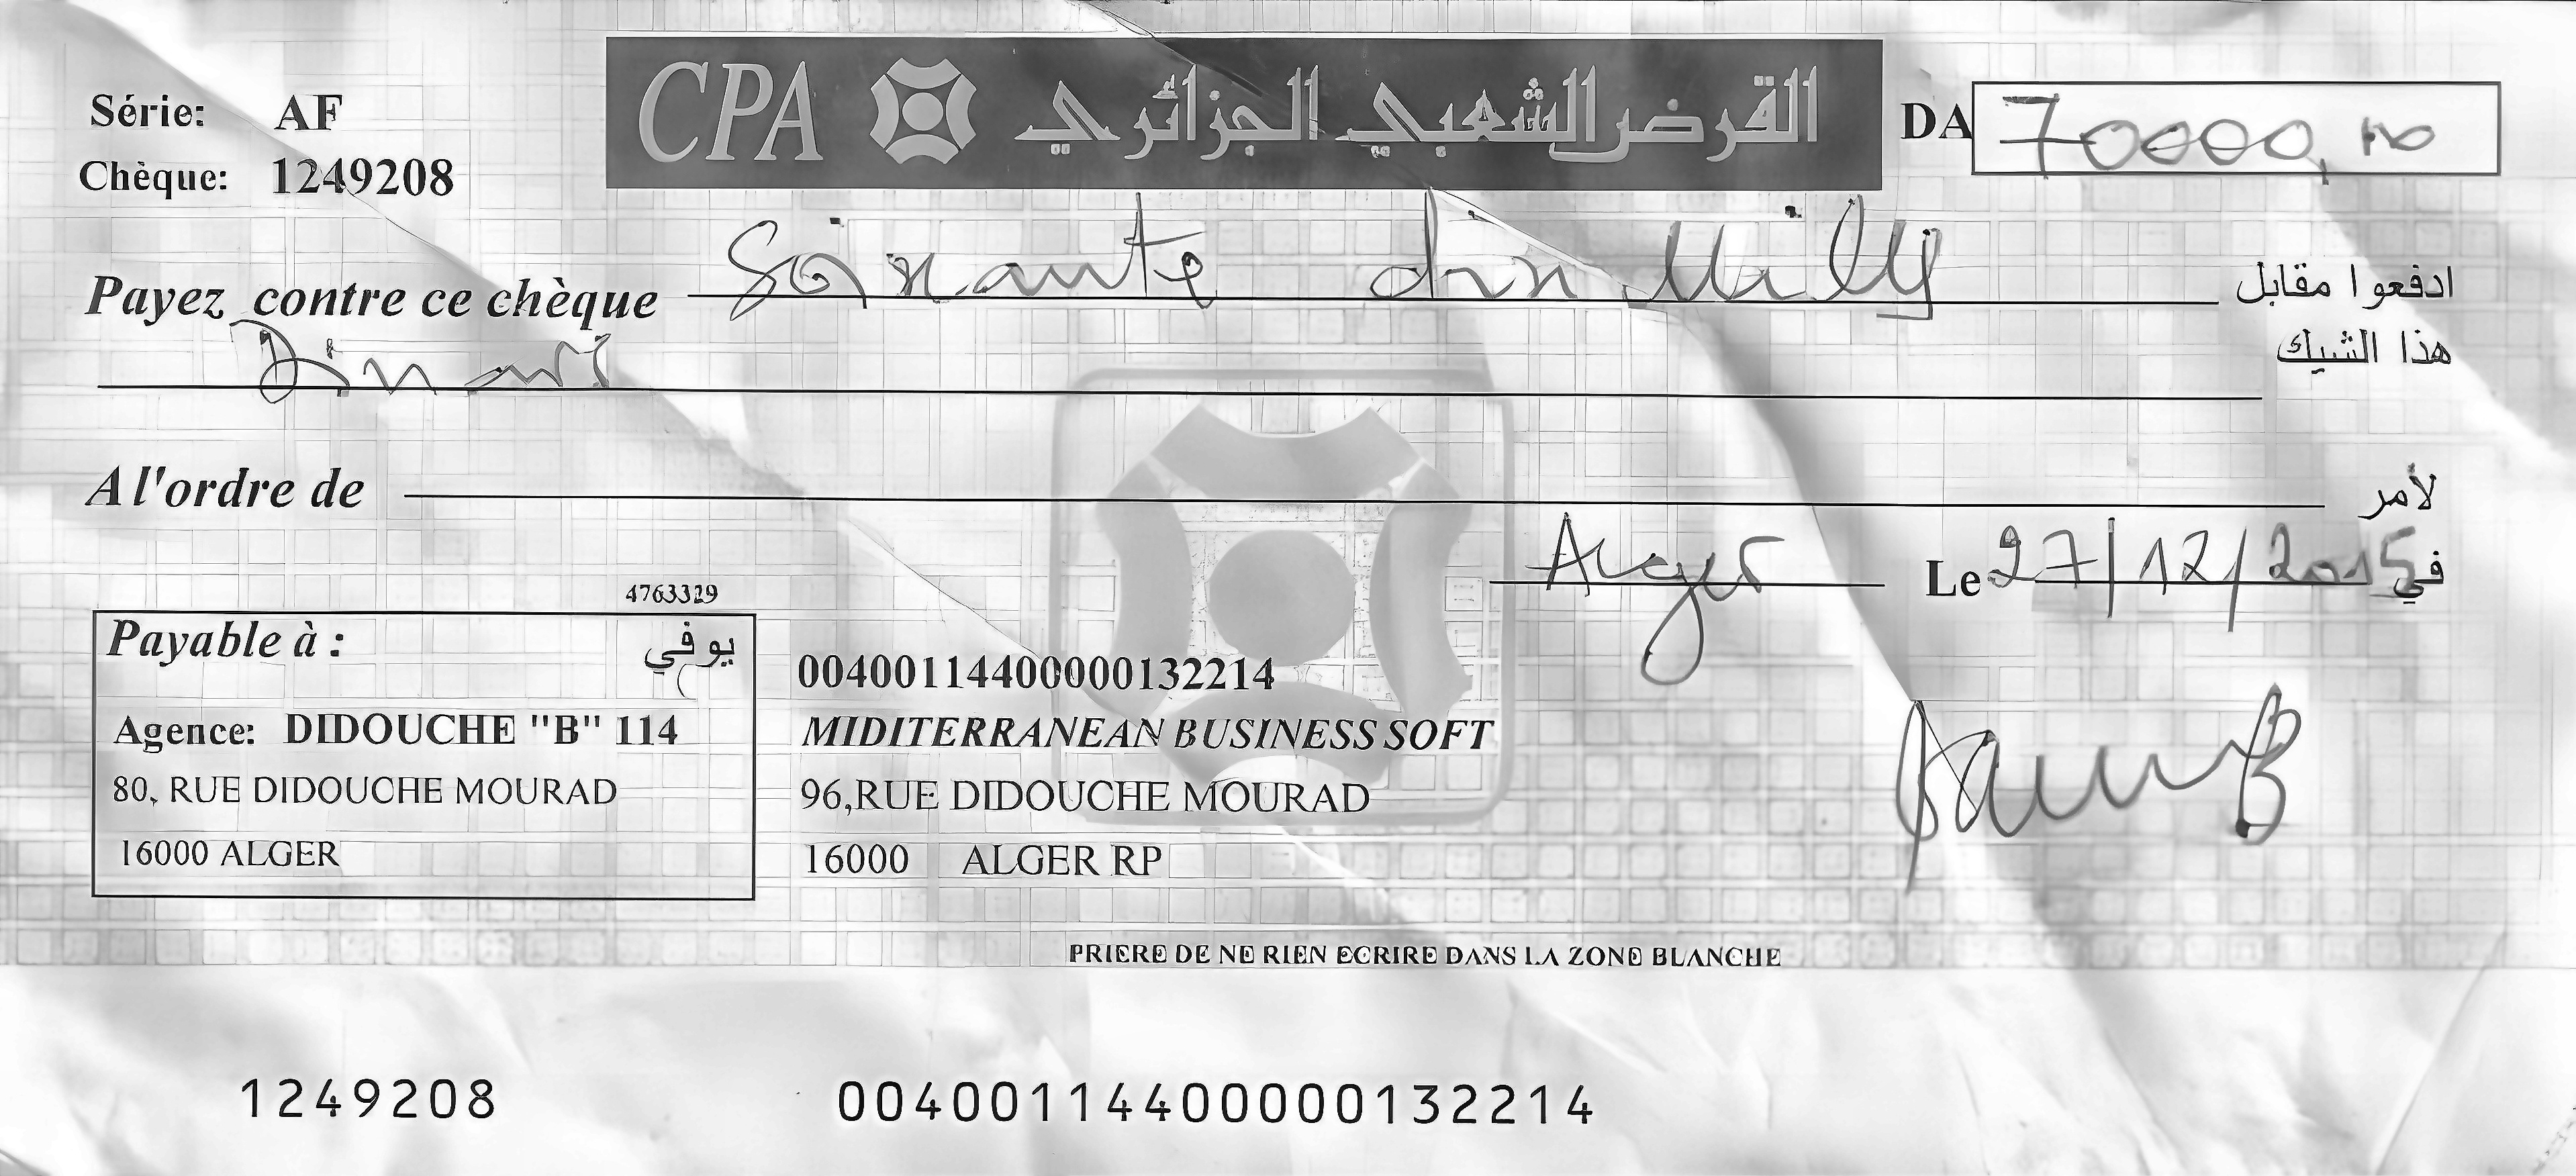 CPA القرض الشعبي الجزائري
Série: AF
DA 70000,00
Chèque: 1249208
Payez contre ce chèque Soixante dix Mille ادفعوا مقابل
Dinars هذا الشيك
A l'ordre de لأمر
Alger Le 27/12/2015 في
4763329
Payable à : يوفي
Agence: DIDOUCHE "B" 114
80, RUE DIDOUCHE MOURAD
16000 ALGER
00400114400000132214
MIDITERRANEAN BUSINESS SOFT
96,RUE DIDOUCHE MOURAD
16000 ALGER RP
PRIERE DE NE RIEN ECRIRE DANS LA ZONE BLANCHE
1249208 00400114400000132214